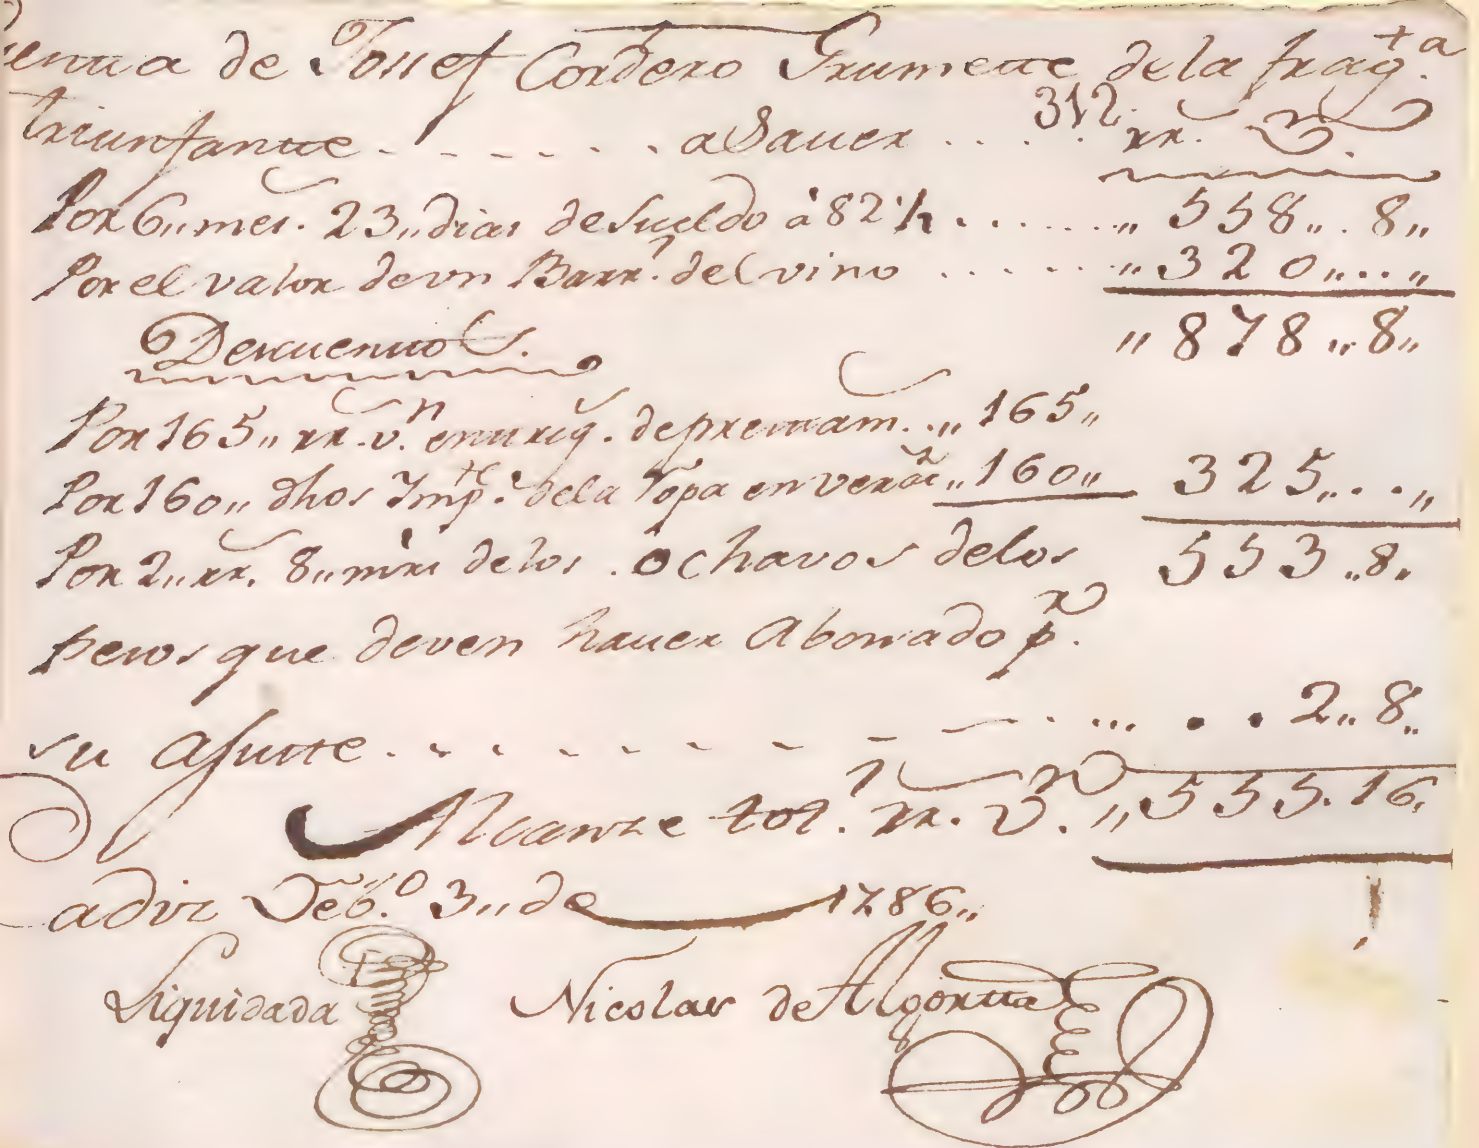 uenta de Jossef Cordero Grumette de la frag.ta
triunfantte - - - - - - . a Sauer . . . . 312. rr. V.
Por 6,, mes. 23,, dias de Sueldo à 82 1/2 . . . . . . ,, 558,, . 8,,
Por el valor de vn Barr.l del vino . . . . . . ,, 320,, . . ,,
Descuenttos.
,, 878 ,, 8,,
Por 165,, rr. v.n enttreg. de prerttam. . ,, 165,,
Por 160,, dhos Imp.te de la Ropa en ,, 160,, 325,, . . ,,
Por 2,, rr. 8,, mrs de los . ochavos de los 553 ,, 8,,
pesos que deven hauer Abonado p.r
su Ajustte. - - - - - - - - - . . . . . . . 2,, 8,,
Alcanze tot.l rr. V.n ,, 555. 16,
adiz Feb.o 3,, de 1786,,
Liquidada Nicolas de Algortta